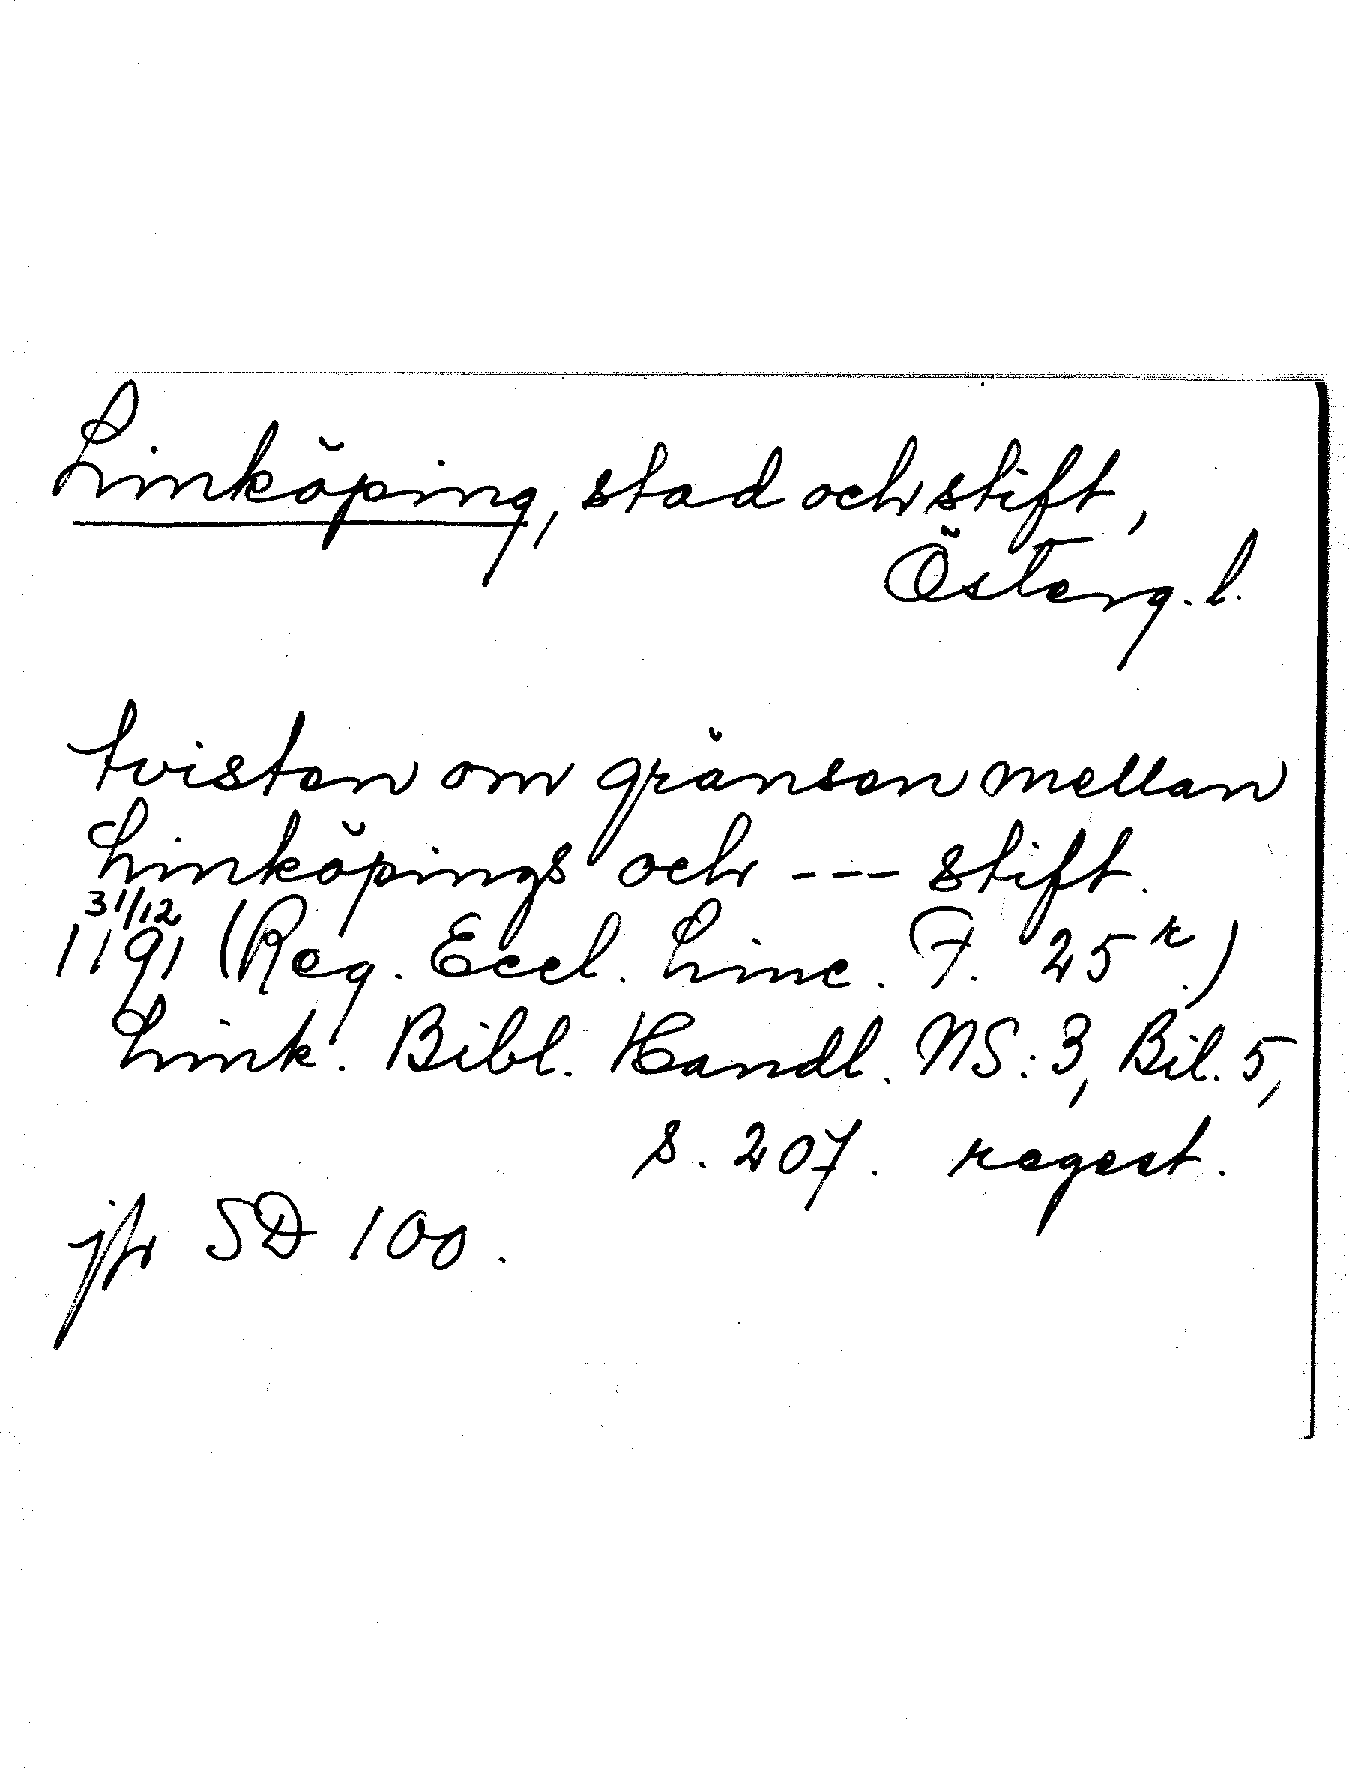 Linköping, stad och stift,
Österg. l.
tvisten om gränsen mellan
Linköpings och --- stift.
31/12
1191 (Reg. Eccl. Linc. F. 25 r.)
Link. Bibl. Handl. NS: 3, Bil. 5,
s. 207. regest.
jfr SD 100.